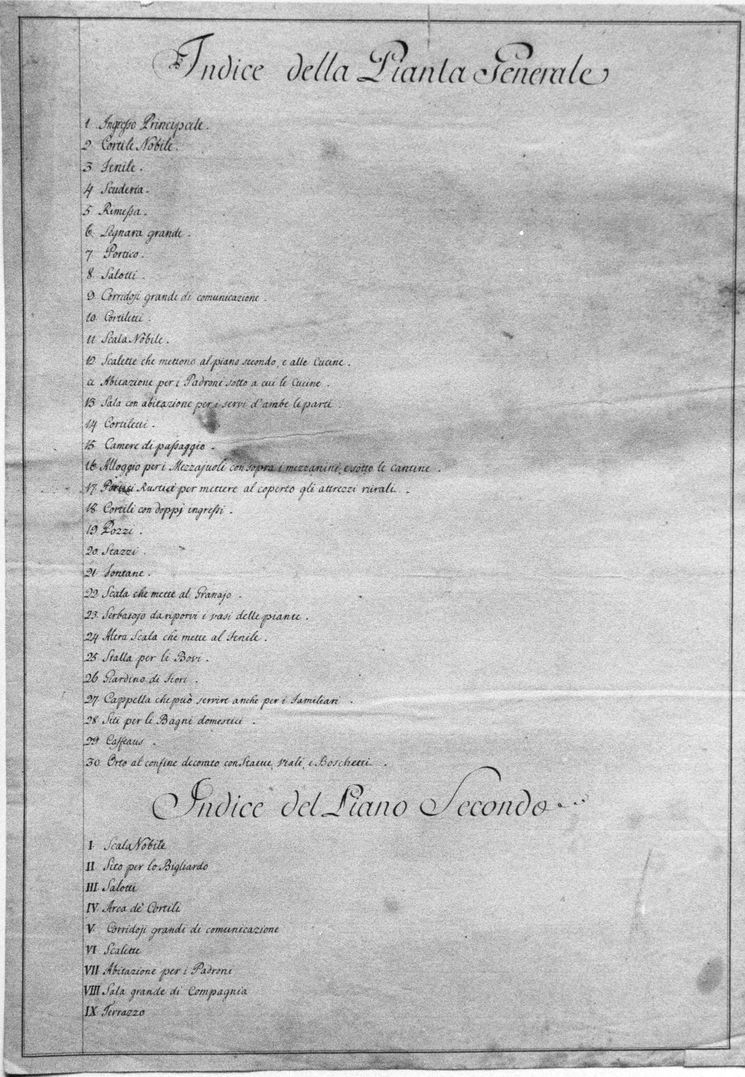 Indice della Pianta Generale
1 Ingresso Principale.
2 Cortile Nobile.
3 Fenile.
4 Scuderia.
5 Rimessa.
6 Legnara grande.
7 Portico.
8 Salotti.
9 Corridoji grandi di comunicazione.
10 Cortiletti.
11 Scala Nobile.
12 Scalette che mettono al piano secondo, e alle Cucine.
a Abitazione per i Padroni sotto a cui le Cucine.
13 Sala con abitazione per i servi d'ambe le parti
14 Cortiletti.
15 Camere di passaggio.
16 Alloggio per i Mezzajuoli con sopra i mezzanini, e sotto le cantine.
17 Portici Rustici per mettere al coperto gli attrezzi rurali.
18 Cortili con doppj ingressi.
19 Pozzi.
20 Stazzi.
21 Fontane.
22 Scala che mette al Granajo.
23 Serbatojo da riporvi i vasi delle piante.
24 Altra Scala che mette al Fenile.
25 Stalla per li Bovi.
26 Giardino di Fiori.
27 Cappella che può servire anche per i Familiari.
28 Siti per li Bagni domestici.
29 Caffeaus.
30 Orto al confine decorato con Statue, Viali, e Boschetti.
Indice del Piano Secondo
I Scala Nobile
II Sito per lo Bigliardo
III Salotti
IV Area de' Cortili
V Corridoji grandi di comunicazione
VI Scalette
VII Abitazione per i Padroni
VIII Sala grande di Compagnia
IX Terrazzo